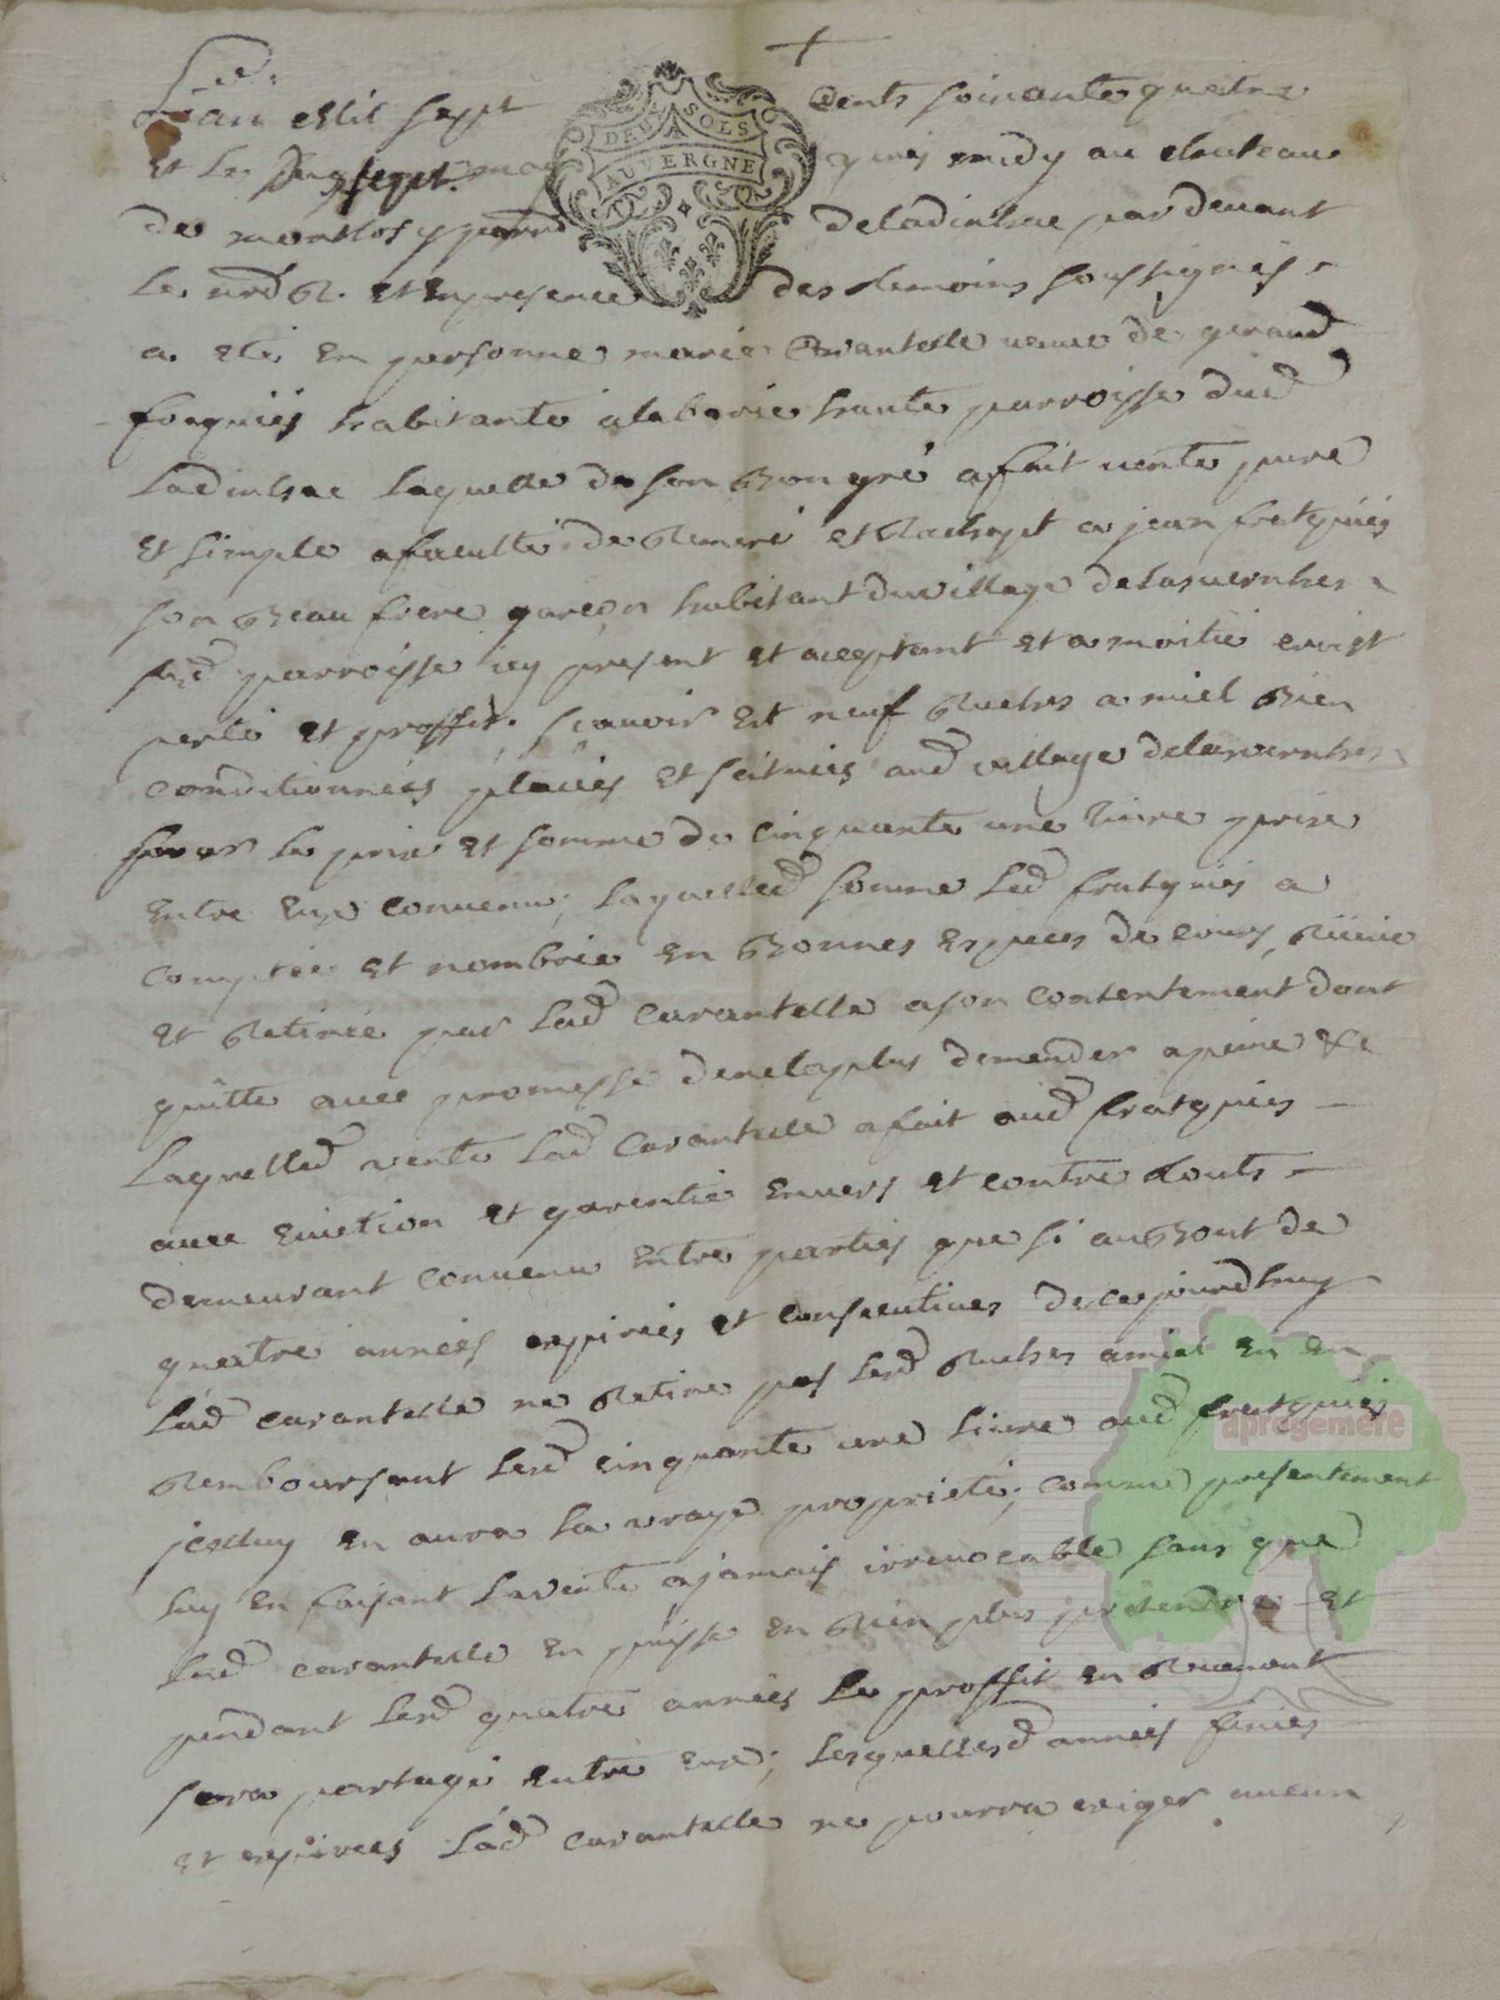 Lan mil sept cents soixante quatre
DEUX SOLS
AUVERGNE
et le dix sept may apres midy au chateau
de montlosy parr de ladinhac par devant
le nre R. et en presence des temoins soussignés
a eté en personne marie Carantelle veuve de geraud
habitante a laborie haute parroisse dud
Ladinhac laquelle de son Bon gré a fait vente pure
et simple a faculté de Remeré et Rachapt a jean fratquiés
son Beau frere garçon habitant du village de lasvernhes
sud parroisse icy present et acceptant et a moitié
perte et proffit. scavoir est neuf Ruches a miel Bien
conditionnées placées et scituées aud village de lasvernhes
pour le prix et somme de cinquante une livre prix
entre eux convenu; laquelled somme led fratquies a
comptée et nombrée en Bonnes especes de cours,
et Retirée par lad Carantelle a son contentement dont
quitte avec promesse de ne la plus demander a peine &c
Laquelled vente lad Carantelle a fait aud fratquies
avec eviction et garentie envers et contre touts
demeurant convenu entre parties que si au Bout de
quatre années expirées et consecutives de ce jourdhuy
lad carantelle ne Retire pas lesd Ruches a miel en en
Remboursant lesd cinquante une livre aud fratquiés
apregemere
jcelluy en aura la vraye proprieté; comme presentement
luy en faisant la vente a jamais irrevocable sans que
lad carantelle en puisse en Rien plus pretendre et
pendant lesd quatre années le proffit en
sera partagé entre eux; lesquellesd années finies
et expirées lad carantelle ne pourra exiger aucun